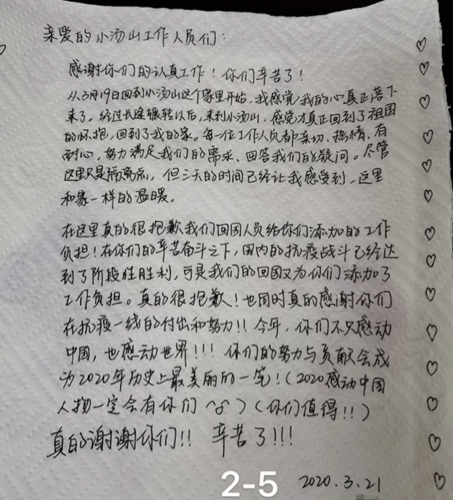 亲爱的小汤山工作人员们：
感谢你们的认真工作！你们辛苦了！
从3月19日回到小汤山这个家里开始，我感觉我的心真正落下
来了。经过长途辗转以后，来到小汤山，感觉才真正回到了祖国
的怀抱，回到了我的家。每一位工作人员都亲切、热情、有
耐心，努力满足我们的需求、回答我们的疑问。尽管
这里只是隔离点，但三天的时间已经让我感受到，这里
和家一样的温暖。
在这里真的很抱歉我们回国人员给你们添加的工作
负担！在你们的辛苦奋斗之下，国内的抗疫战斗已经达
到了阶段性胜利，可是我们的回国又为你们添加了
工作负担。真的很抱歉！也同时真的感谢你们
在抗疫一线的付出和努力！！今年，你们不只感动
中国，也感动世界！！！你们的努力与贡献会成
为2020年历史上最美丽的一笔！（2020感动中国
人物一定会有你们）（你们值得！！）
真的谢谢你们！！辛苦了！！！
2-5
2020.3.21